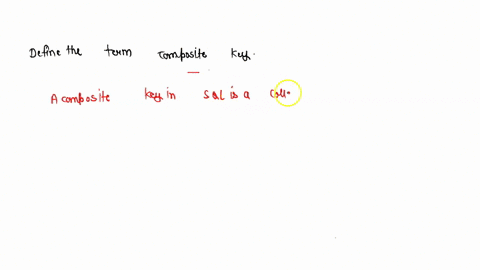 Define the term composite key.
A composite key in SQL is a